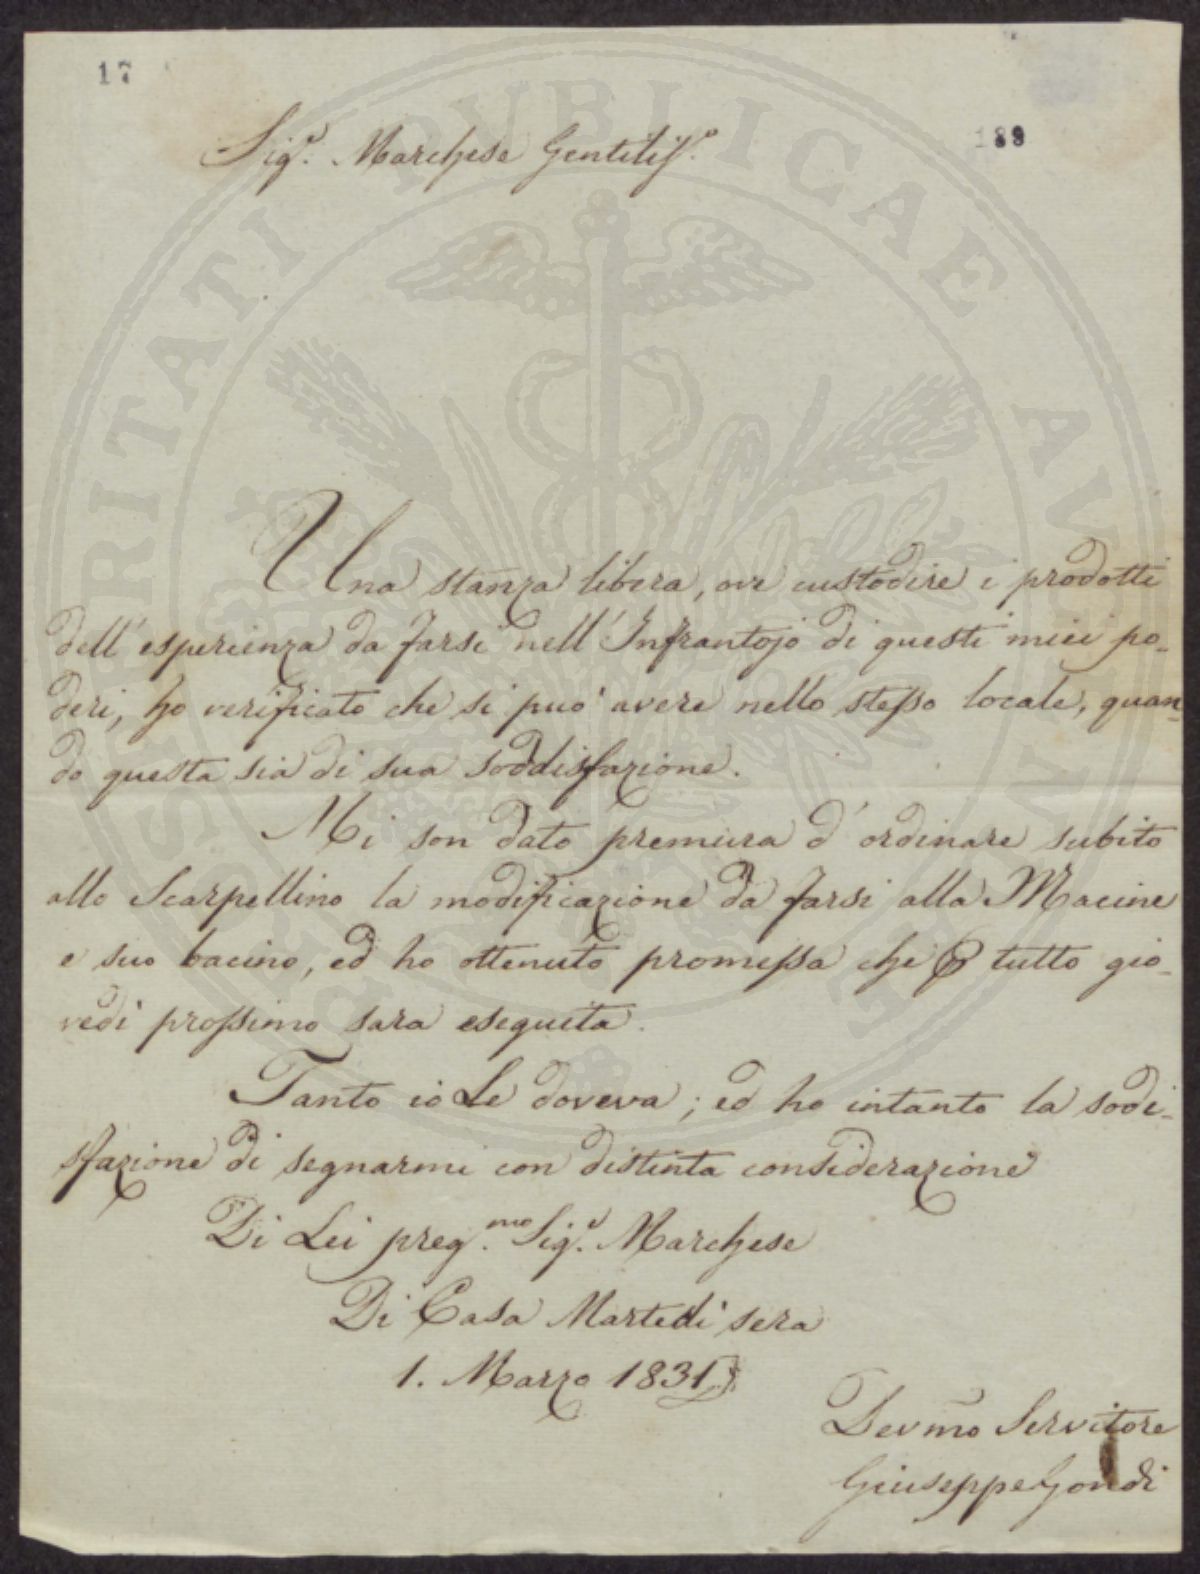 17
189
Sig.e Marchese Gentiliss.o
Una stanza libera, ove custodire i prodotti
dell'esperienza da farsi nell'Infrantojo di questi miei po-
deri, ho verificato che si può avere nello stesso locale, quan-
do questa sia di sua soddisfazione.
Mi son dato premura d'ordinare subito
allo Scarpellino la modificazione da farsi alla Macine
e suo bacino, ed ho ottenuto promessa che per tutto gio-
vedì prossimo sara eseguita.
Tanto io Le doveva; ed ho intanto la sodi-
sfazione di segnarmi con distinta considerazione
Di Lei preg.mo Sig.e Marchese
Di Casa Martedì sera
1. Marzo 1831
Devmo Servitore
Giuseppe Gondi
PROSPERITATI PUBLICAE AUGENDAE